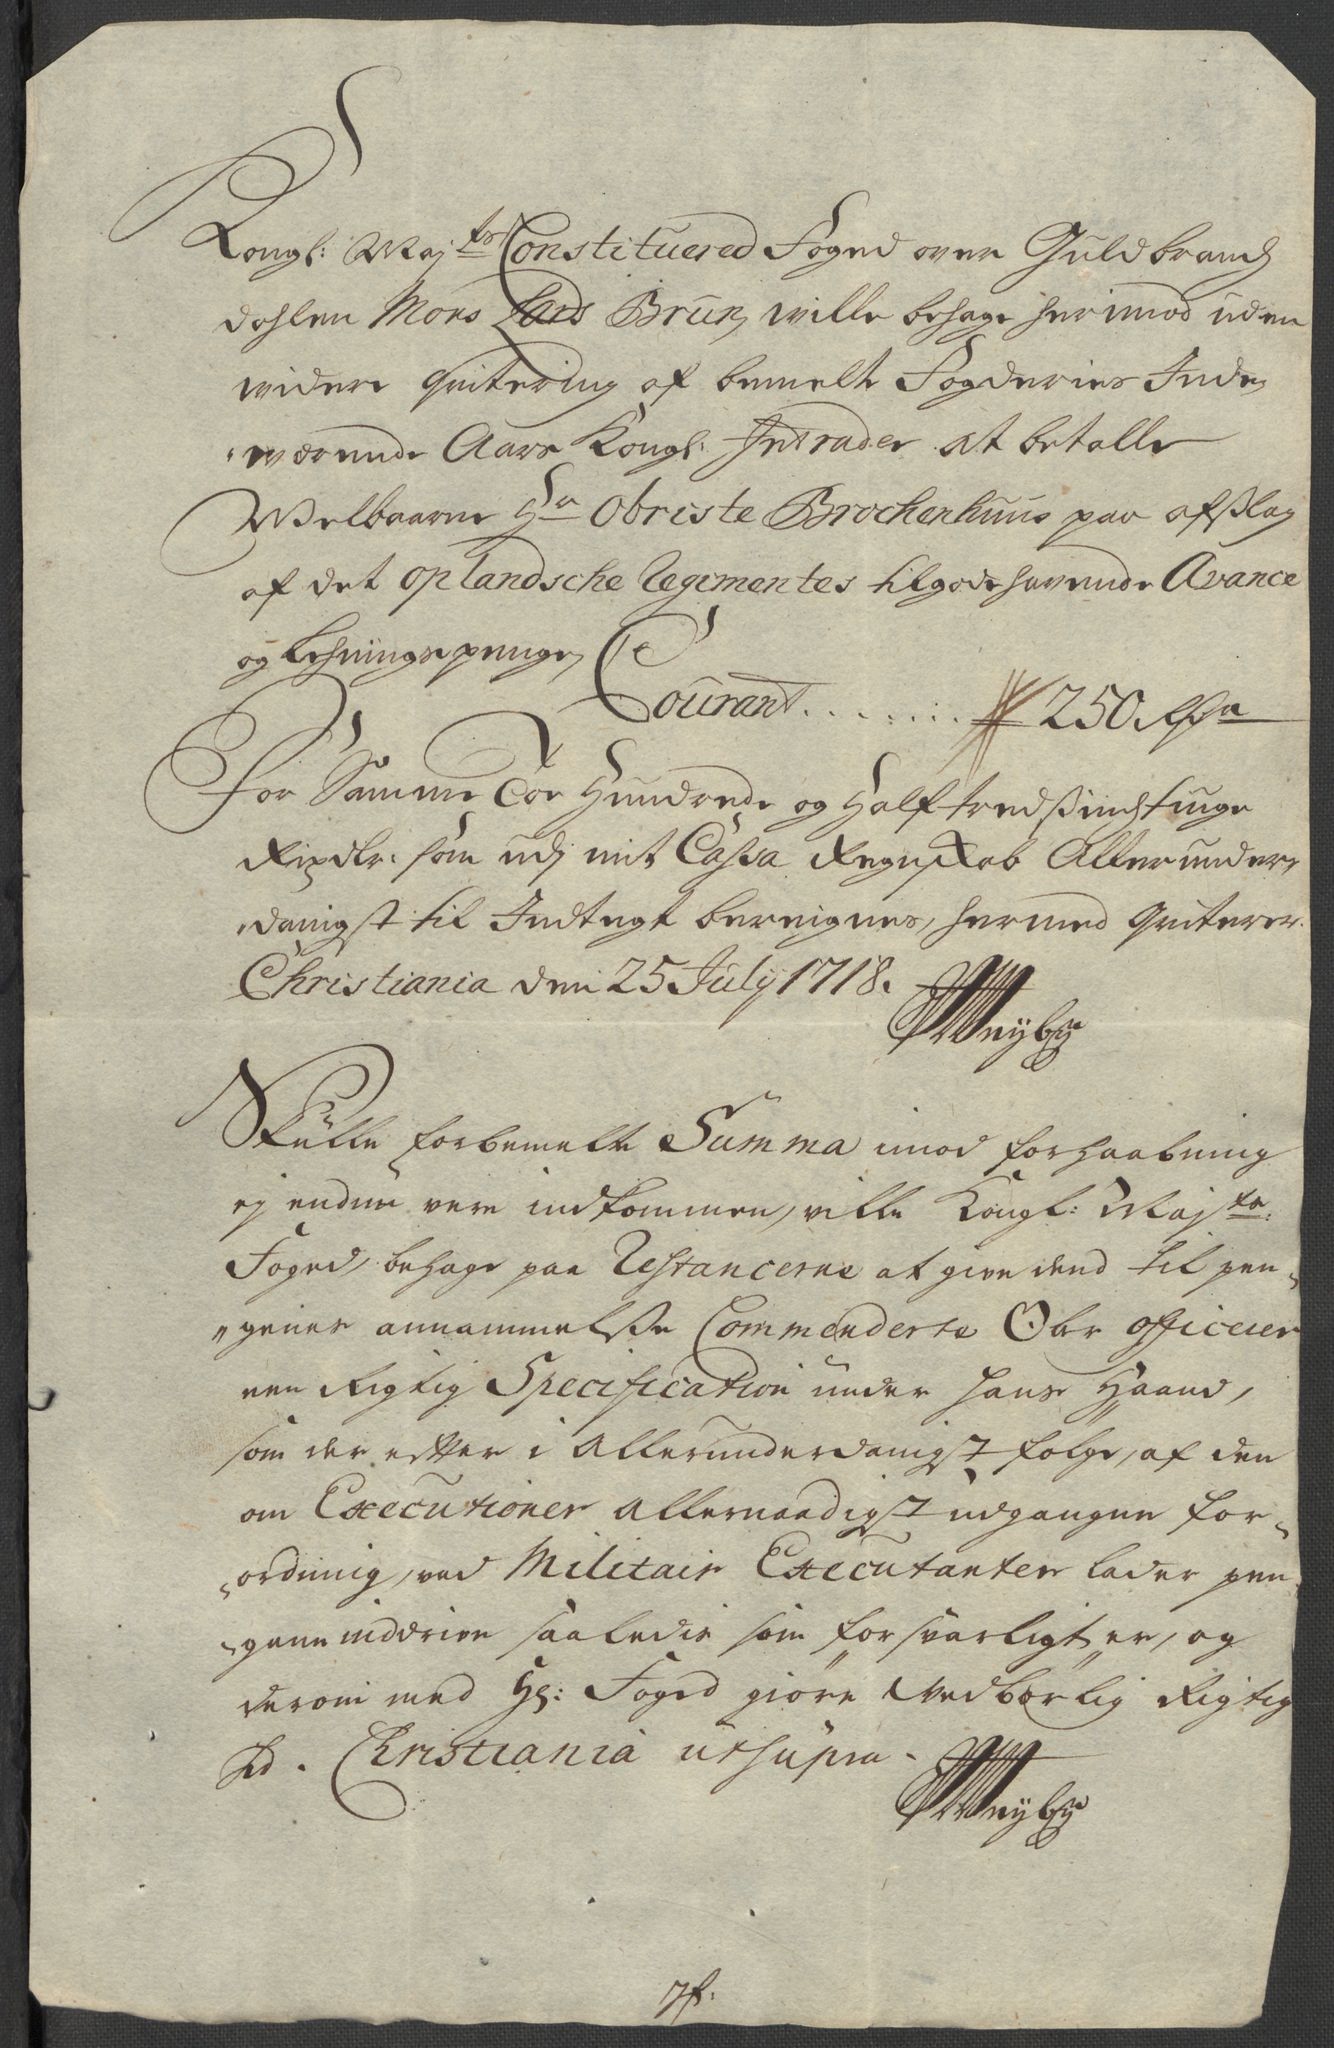 Kongl: Maj:ts Constituered Foged over Guldbrands
dahlen Mons Lars Brun, wille behage herimod uden
widere Quitering af bemelte Fogderies Inde„
„wærende Aars Kongl: Intrader at betalle
Welbaarne Hr Obriste Brochenhuus paa afslag
af det oplandsche Regimentes tilgodehavende Avance
og Lehningspenge,
Courant . . . . . . . . 250 Rdr
For Samme Toe Hundrede og Halftredsindstiuge
Rixdlr. som udj mit Cassa Regnskab Allerunder„
„danigst til Indtegt beregnes, hermed Quiterer.
Christiania den 25 July 1718.
Weyby
Skulle forbemelte Summa imod forhaabning
ej endnu vere indkommen, ville Kongl: Majts:
Foged, behage paa Restancerne at give dend til pen„
„genes annammelse Commenderte Ober officeer
een Rigtig Specification under hans Haand,
som der efter i Allerunderdanigst følge, af den
om Executioner Allernaadigst udgangne for„
„ordning, ved Militair Executanter lader pen„
„gene inddrive saaledis som forsvarligt er, og
derom med Hr: Foged giøre Vedbørlig Rigtig
hd. Christiania ut supra.
Weyby